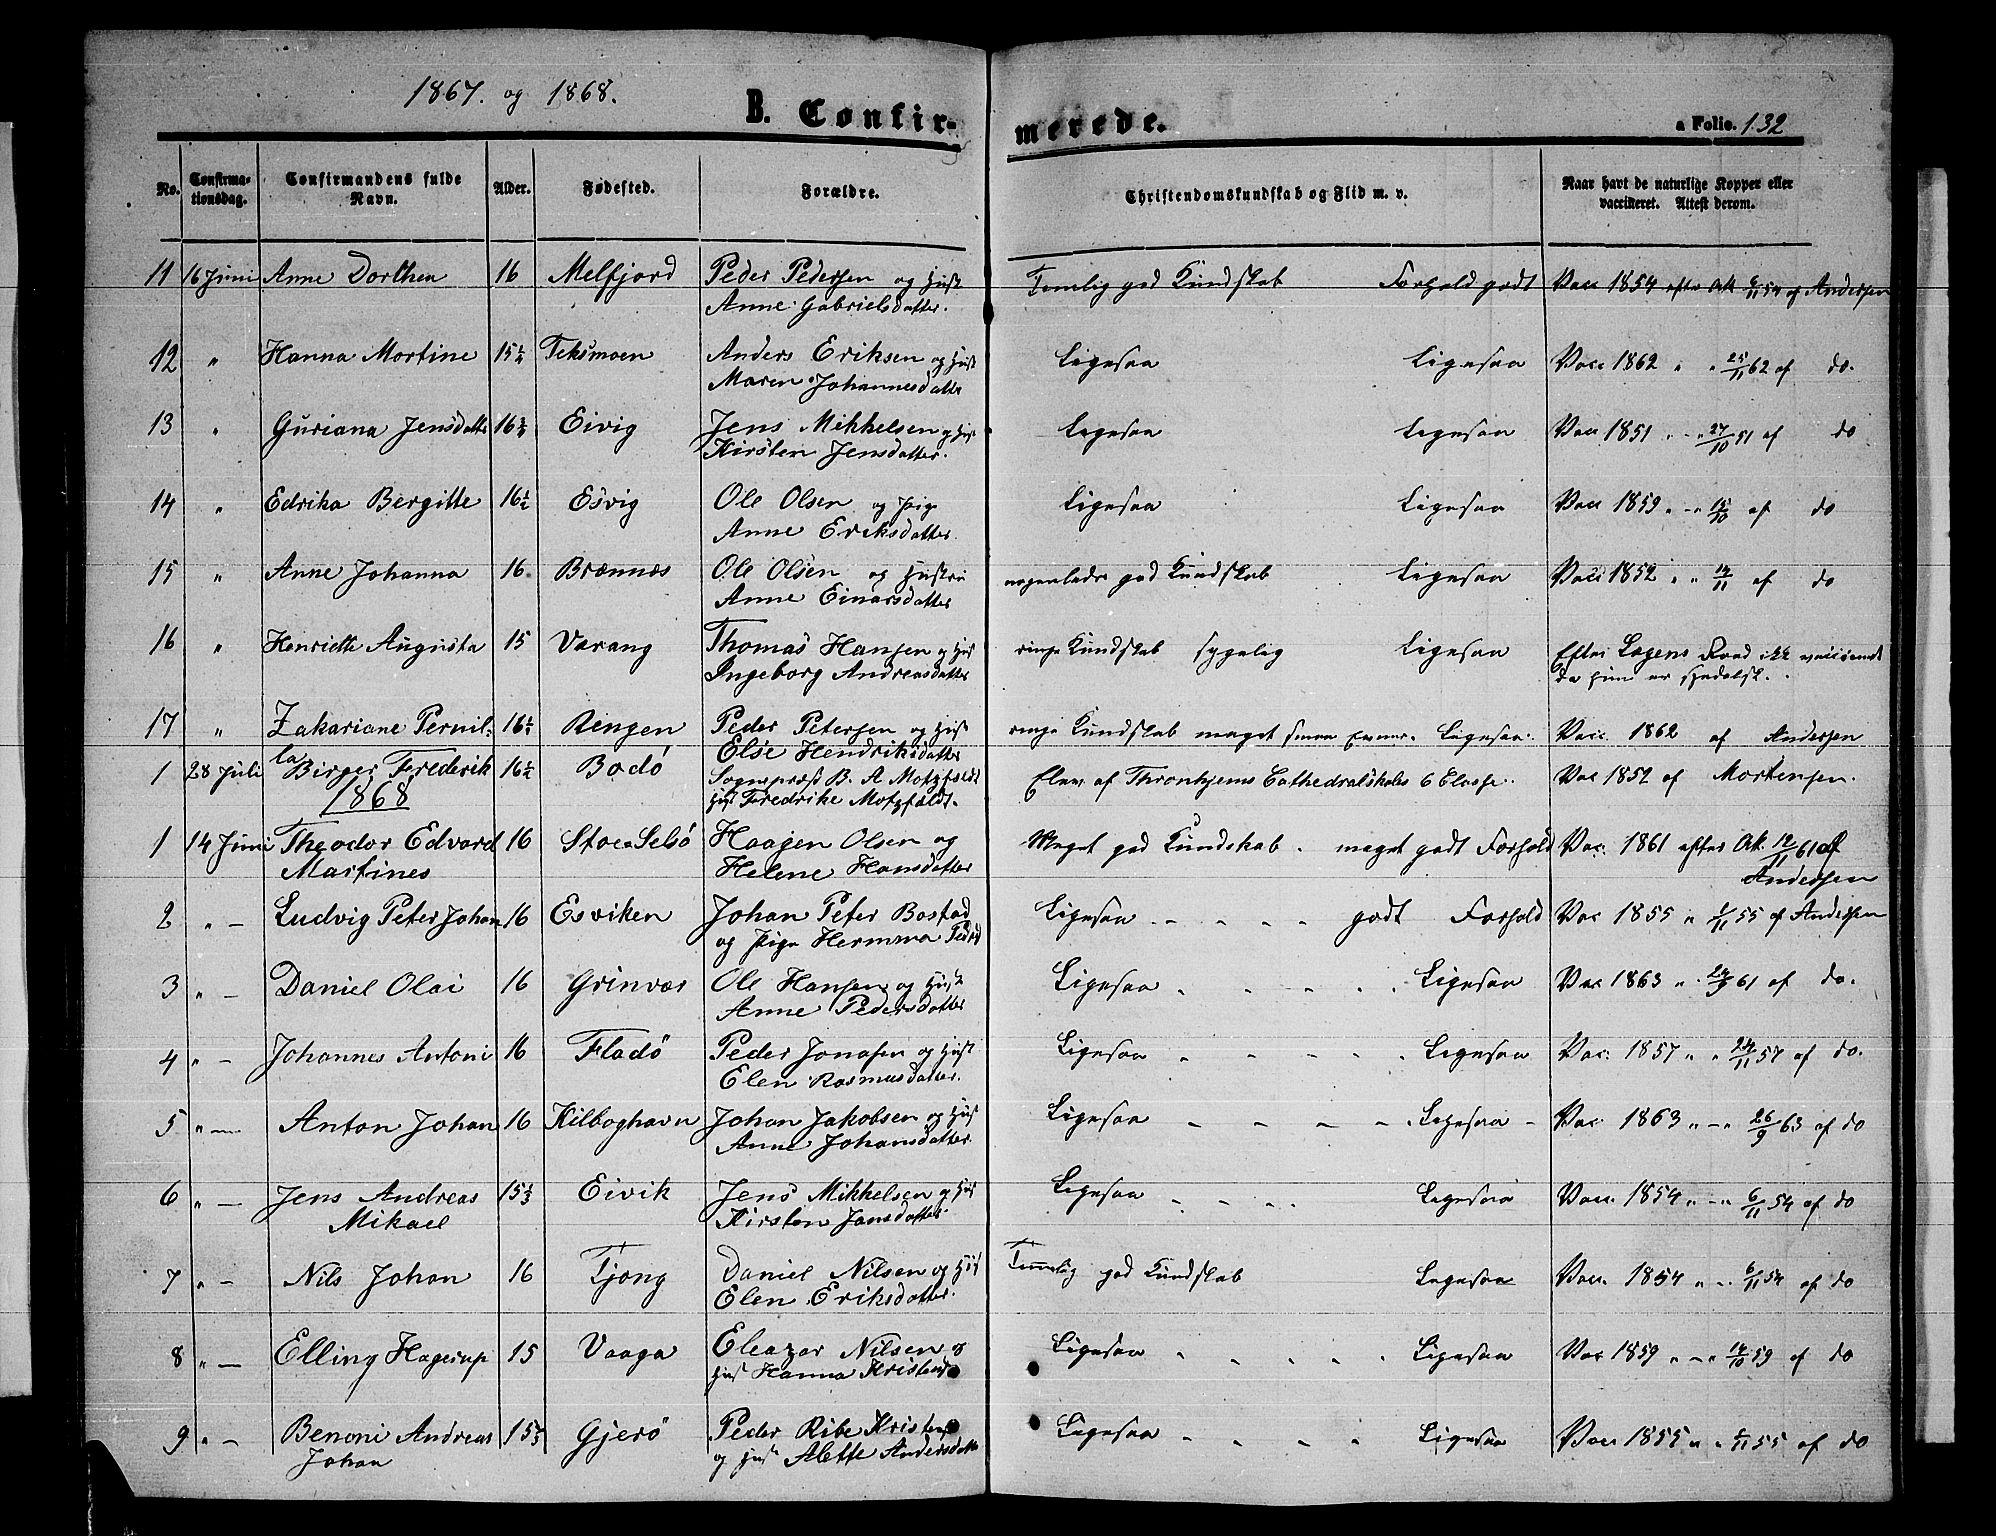 1867. og 1868.
B. Confirmerede.
a Folio. 132
No. Confirmationsdag. Confirmandens fulde Navn. Alder. Fødested. Forældre. Christendomskundskab og Flid m. v. Naar havt de naturlige Kopper eller vaccineret. Attest derom.
11 16 Juni Anne Dorthea 16 Melfjord Peder Pedersen og Hust Temlig god Kundskab Forhold godt Vacc 1854 efter Att 6/11 54 af Andersen
Anne Gabrielsdatter.
12 " Hanna Martine 15 1/4 Teksmoen Anders Eriksen og Hust Ligesaa Ligesaa Vacc 1862 " " 25/11 62 af do.
Maren Johannesdatter
13 " Guriana Jensdatter 16 3/4 Eivig Jens Mikkelsen og Hust Ligesaa Ligesaa Vacc 1851 " - " 27/10 51 af do
Kirsten Jensdatter.
14 " Edrika Bergitte 16 1/2 Esvig Ole Olsen og Pige Ligesaa Ligesaa Vacc 1859 " - " 15/10 af do
Anne Eriksdatter.
15 " Anne Johanna 16 Brænnæs Ole Olsen og Hustru nogenlede god Kundskab Ligesaa Vacc 1852 " " 14/11 af do
Anne Einarsdatter
16 " Henriette Augusta 15 Værang Thomas Hansen og Hust ringe Kundskab sygelig Ligesaa Efter Lægens Raad ikke vaccineret
Ingeborg Andreasdatter da hun er spedalsk.
17 " Zakariane Pernil- 16 1/2 Ringen Peder Petersen og Hust ringe Kundskab meget smaa Evner. Ligesaa. Vacc. 1862 af Andersen
la Else Hendriksdatter
1 28 Juli Birger Frederik 16 1/2 Bodö Sogneprest B. A Motzfeldt Elev af Thronhjems Cathedralskoles 6 Classe. Vac 1852 af Mortensen.
Hust Fredrike Motzfeldt.
1868
1 14 Juni Theodor Edvard 16 Stoe Selsö Haagen Olsen og Meget god Kundskab . meget godt Forhold Vac. 1861 efter At. 12/11 61 af
Martines Helene Hansdatter Andersen
2 " - Ludvig Peter Johan 16 Esviken Johan Peter Bostad Ligesaa - - - - godt Forhold Vac 1855 " 6/11 55 af Andersen
og Pige Hermma Pedsd
3 " - Daniel Olai 16 Grinvær Ole Hansen og Hust Ligesaa - - - - - Ligesaa Vac 1863 " 24/9 61 af do.
Anne Pedersdatter
4 " - Johannes Antoni 16 Fladö Peder Jonasen og Hust Ligesaa - - - - - . Ligesaa Vac. 1857 " " 24/11 57 af do.
Elen Rasmusdatter.
5 " - Anton Johan 16 Kilboghavn Johan Jakobsen og Hust Ligesaa - - - - . Ligesaa - Vac 1863 " - " 26/9 63 af do
Anne Johansdatter
6 " - Jens Andreas 15 1/2 Eivik Jens Mikkelsen og Hust Ligesaa - - - - Ligesaa Vacc. 1854 " - " 6/11 54 af do
Mikael Kirsten Jensdatter.
7 " - Nils Johan 16 Tjong Daniel Nilsen og Hust Temmelig god Kundskab Ligesaa Vacc. 1854 " - " 6/11 54 af do
Elen Eriksdatter.
8 " - Elling Hagerup 15 Vaaga Eleazar Nilsen og Ligesaa - - - - - Ligesaa Vac 1859 " - " 14/10 59 af do
Hust Hanna Kristensd
9 " - Benoni Andreas 15 2/3 Gjerö Peder Ribe Kristens Ligesaa - - - - - Ligesaa Vacc 1855 " " 6/11 55 af do
Johan og Hust Alette Andersdatter